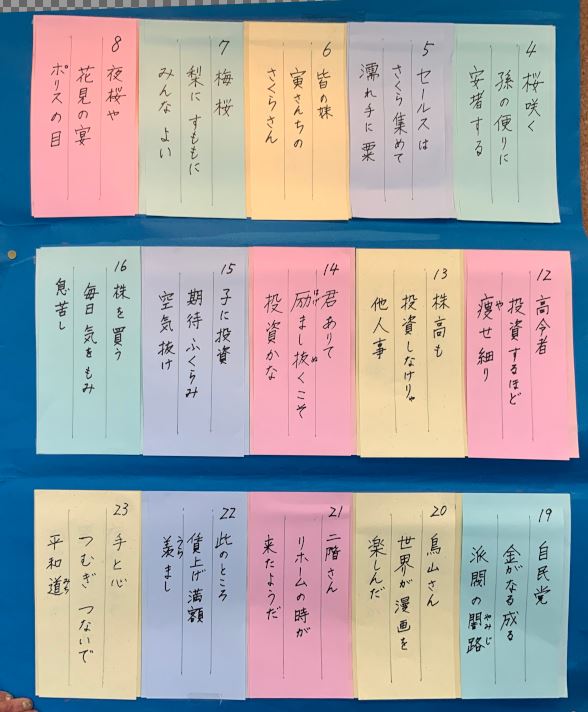 4 桜咲く
孫の便りに
安堵する
5 セールスは
さくら集めて
濡れ手に粟
6 皆の妹
寅さんちの
さくらさん
7 梅桜
梨に すももに
みんな よい
8 夜桜や
花見の宴
ポリスの目
12 高令者
投資するほど
痩せ細り
や
13 株高も
投資しなけりゃ
他人事
14 君ありて
励まし抜くこそ
はげ ぬ
投資かな
15 子に投資
期待 ふくらみ
空気抜け
16 株を買う
毎日 気をもみ
息苦し
19 自民党
金がなる成る
派閥の闇路
やみじ
20 鳥山さん
世界が漫画を
楽しんだ
21 二階さん
リホームの時が
来たようだ
22 此のところ
賃上げ満額
羨まし
うら
23 手と心
つむぎ つないで
平和道
みち